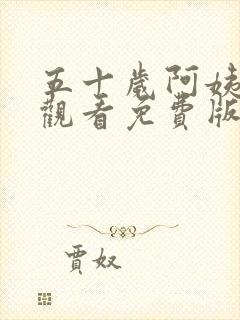 五十歲阿姨
觀看免費版
賈奴